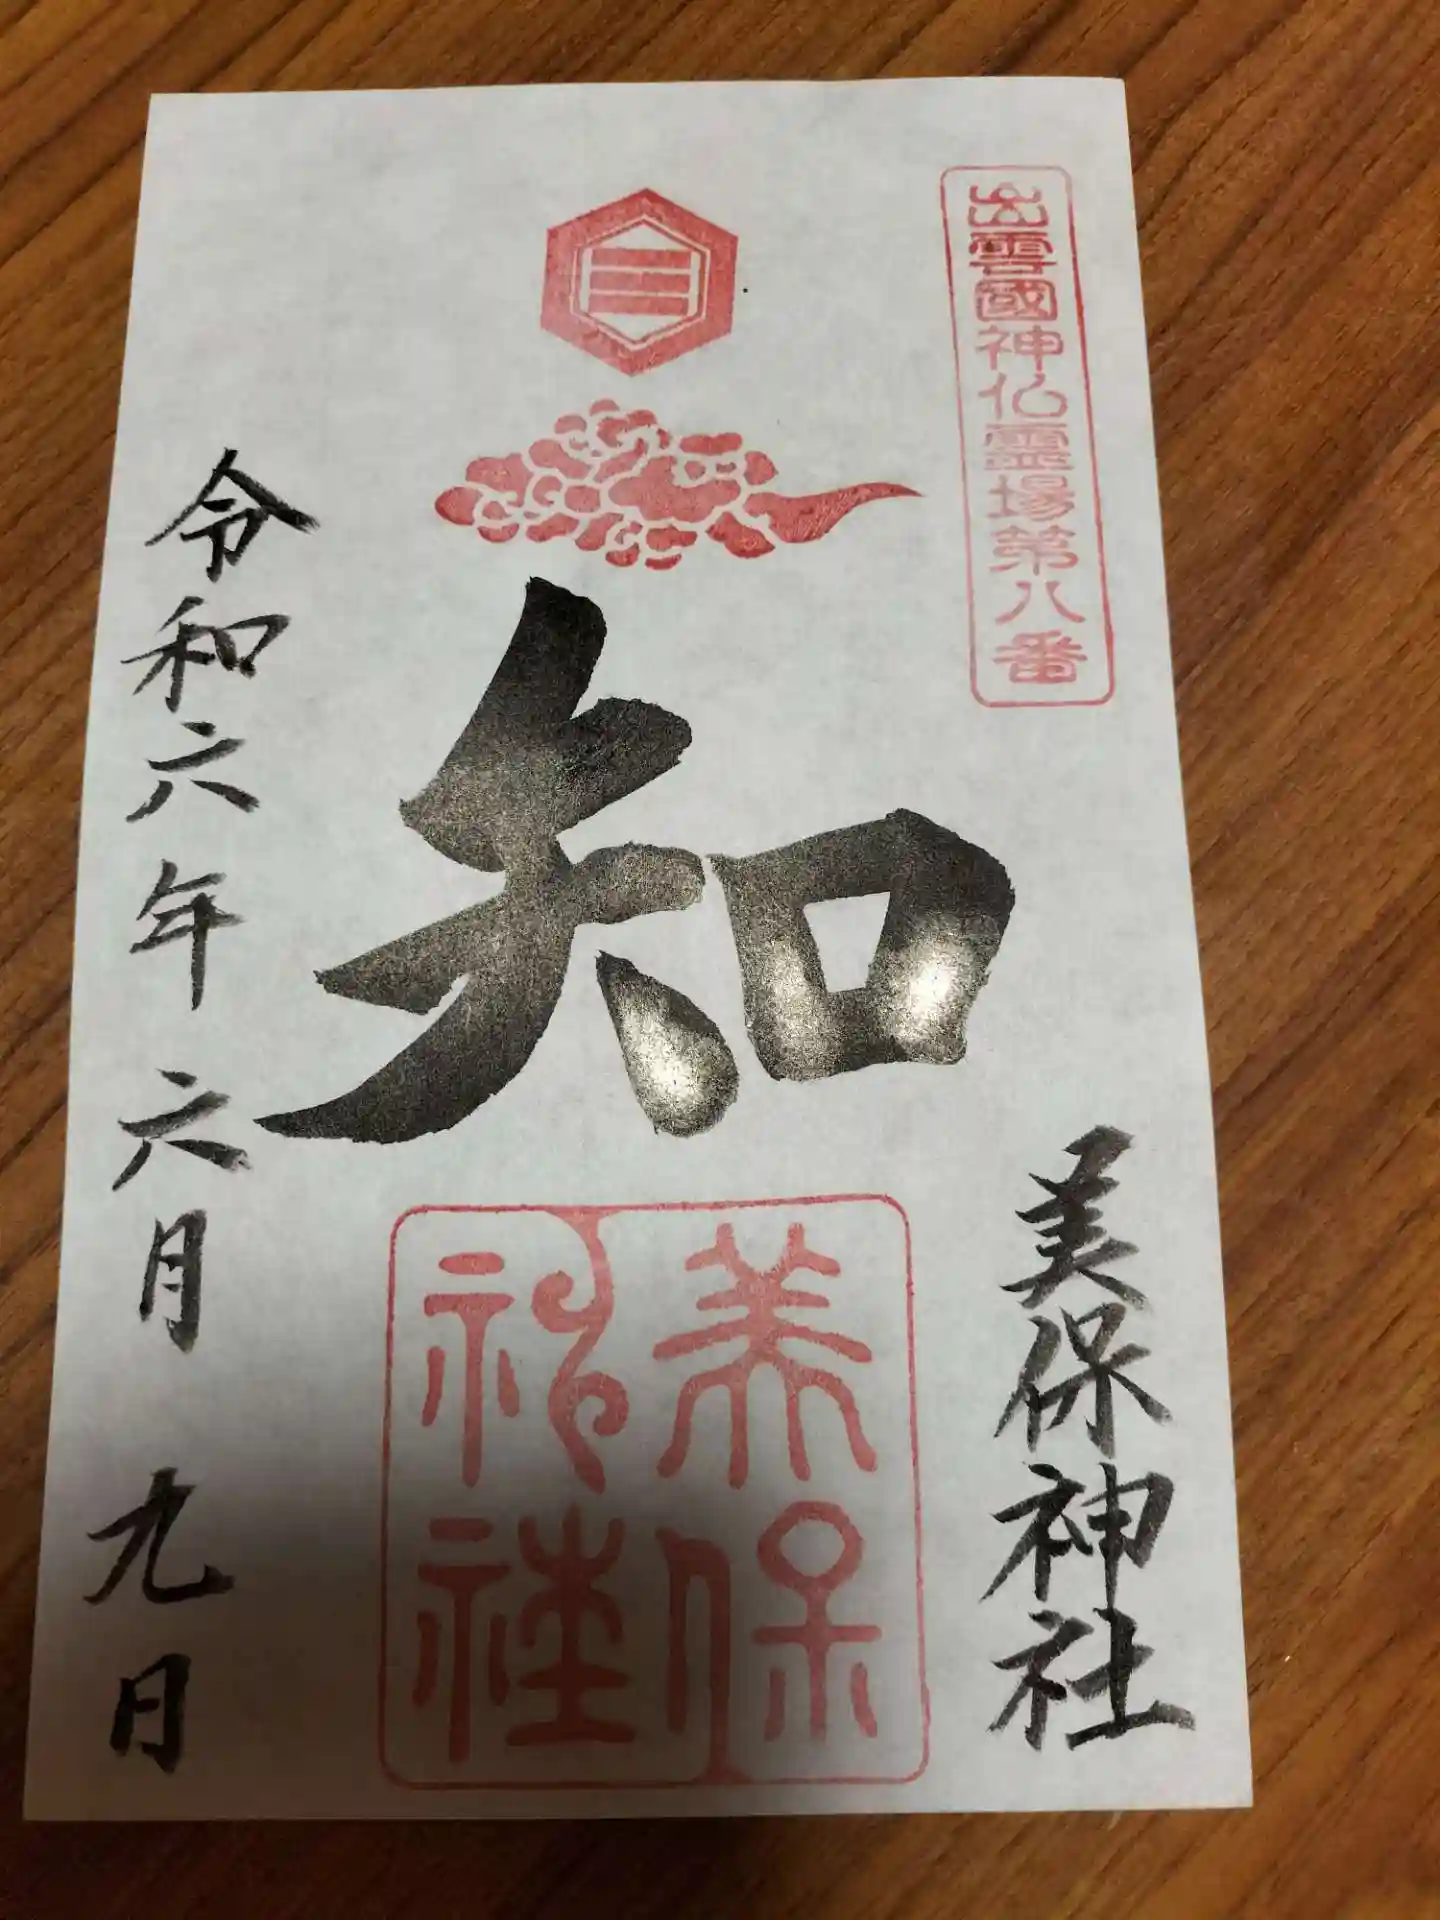 出雲國神仏霊場第八番
美保神社
知
美保
神社
令和六年六月九日